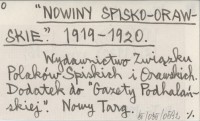 0
"NOWINY SPISKO-ORAW-
SKIE". 1919-1920.
Wydawnictwo Związku
Polaków Spiskich i Orawskich.
Dodatek do "Gazety Podhalań-
skiej". Nowy Targ.